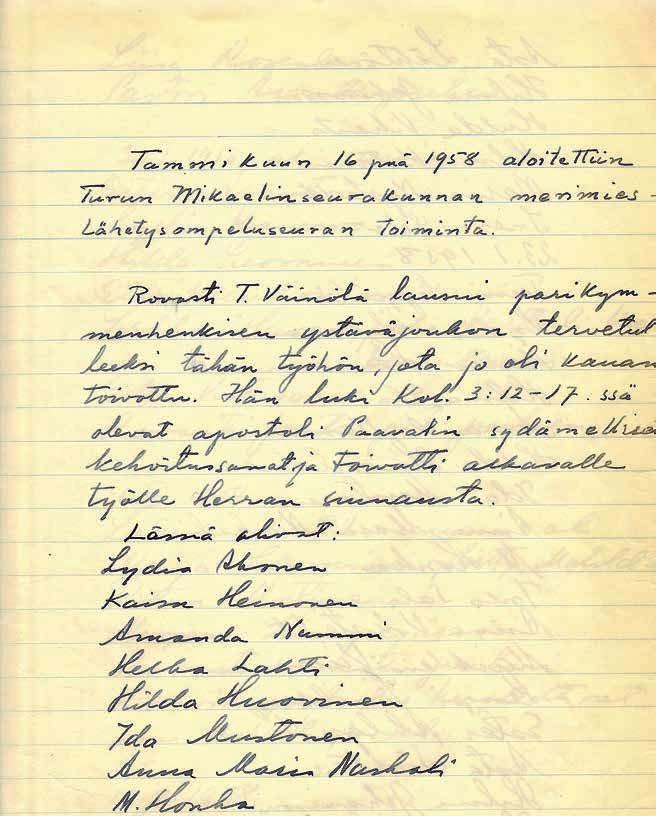 Tammikuun 16 pnä 1958 aloitettiin
Turun Mikaelinseurakunnan merimies-
Lähetysompeluseuran toiminta.
Rovasti T. Väinölä lausui parikym-
menhenkisen ystäväjoukon tervetul
leeksi tähän työhön, jota jo oli kauan
toivottu. Hän luki Kol. 3:12-17. ssä
olevat apostoli Paavalin sydämellisen
kehoitussanat ja toivotti alkavalle
työlle Herran siunausta.
Läsnä olivat:
Lydia Ahonen
Kaisu Heinonen
Amanda Nummi
Helka Lahti
Hilda Huovinen
Ida Mustonen
Anna Maria Naskali
M. Honka